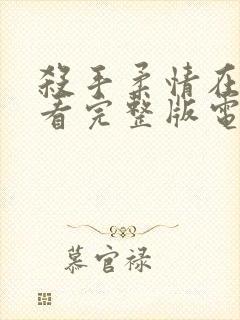 殺手柔情在
看完整版電
慕官禄